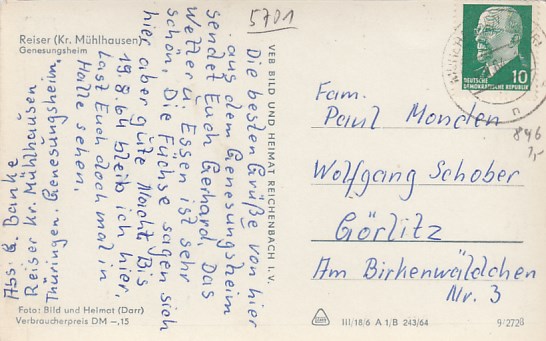 Reiser (Kr. Mühlhausen)
Genesungsheim
5701
Die besten Grüße von hier
aus dem Genesungsheim
sendet Euch Gerhard. Das
Wetter u. Essen ist sehr
schön. Die Füchse sagen sich
hier aber gute Nacht. Bis
19.8.64 bleib ich hier,
Last Euch doch mal in
Halle sehen.
Abs: G. Banke
Reiser Kr. Mühlhausen
Thüringen. Genesungsheim.
Foto: Bild und Heimat (Darr)
Verbraucherpreis DM –,15
VEB BILD UND HEIMAT REICHENBACH I. V.
10
DEUTSCHE
DEMOKRATISCHE REPUBLIK
n
846
1,-
Fam.
Paul Monden
Wolfgang Schober
Görlitz
Am Birkenwäldchen
Nr. 3
III/18/6 A 1/B 243/64
9/2728